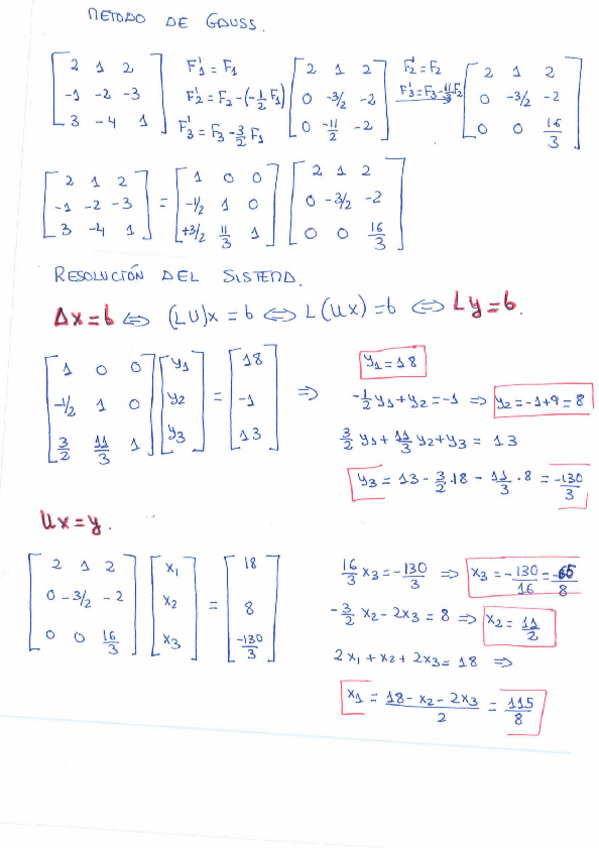 METODO DE GAUSS.
[2 1 2; -1 -2 -3; 3 -4 1] F₁' = F₁ F₂' = F₂ - (-1/2 F₁) F₃' = F₃ - 3/2 F₁ [2 1 2; 0 -3/2 -2; 0 -11/2 -2] F₂' = F₂ F₃' = F₃ - 11/3 F₂ [2 1 2; 0 -3/2 -2; 0 0 16/3]
[2 1 2; -1 -2 -3; 3 -4 1] = [1 0 0; -1/2 1 0; +3/2 11/3 1] [2 1 2; 0 -3/2 -2; 0 0 16/3]
RESOLUCIÓN DEL SISTEMA.
Ax=b ⇔ (LU)x = b ⇔ L(Ux) = b ⇔ Ly=b.
[1 0 0; -1/2 1 0; 3/2 11/3 1] [y₁; y₂; y₃] = [18; -1; 13] ⇒
y₁ = 18
-1/2 y₁ + y₂ = -1 ⇒ y₂ = -1+9 = 8
3/2 y₁ + 11/3 y₂ + y₃ = 13
y₃ = 13 - 3/2 · 18 - 11/3 · 8 = -130/3
Ux=y.
[2 1 2; 0 -3/2 -2; 0 0 16/3] [x₁; x₂; x₃] = [18; 8; -130/3]
16/3 x₃ = -130/3 ⇒ x₃ = -130/16 = -65/8
-3/2 x₂ - 2x₃ = 8 ⇒ x₂ = 11/2
2x₁ + x₂ + 2x₃ = 18 ⇒
x₁ = (18 - x₂ - 2x₃)/2 = 115/8